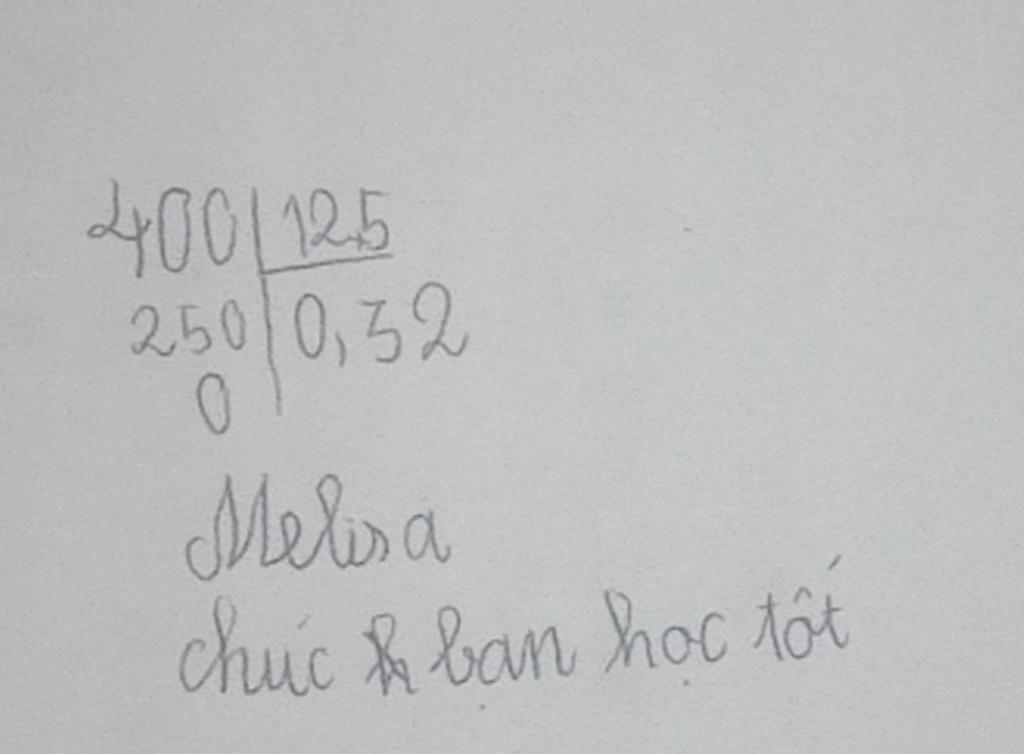 400 12,5
250 0,32
0
Melisa
chúc bạn học tốt